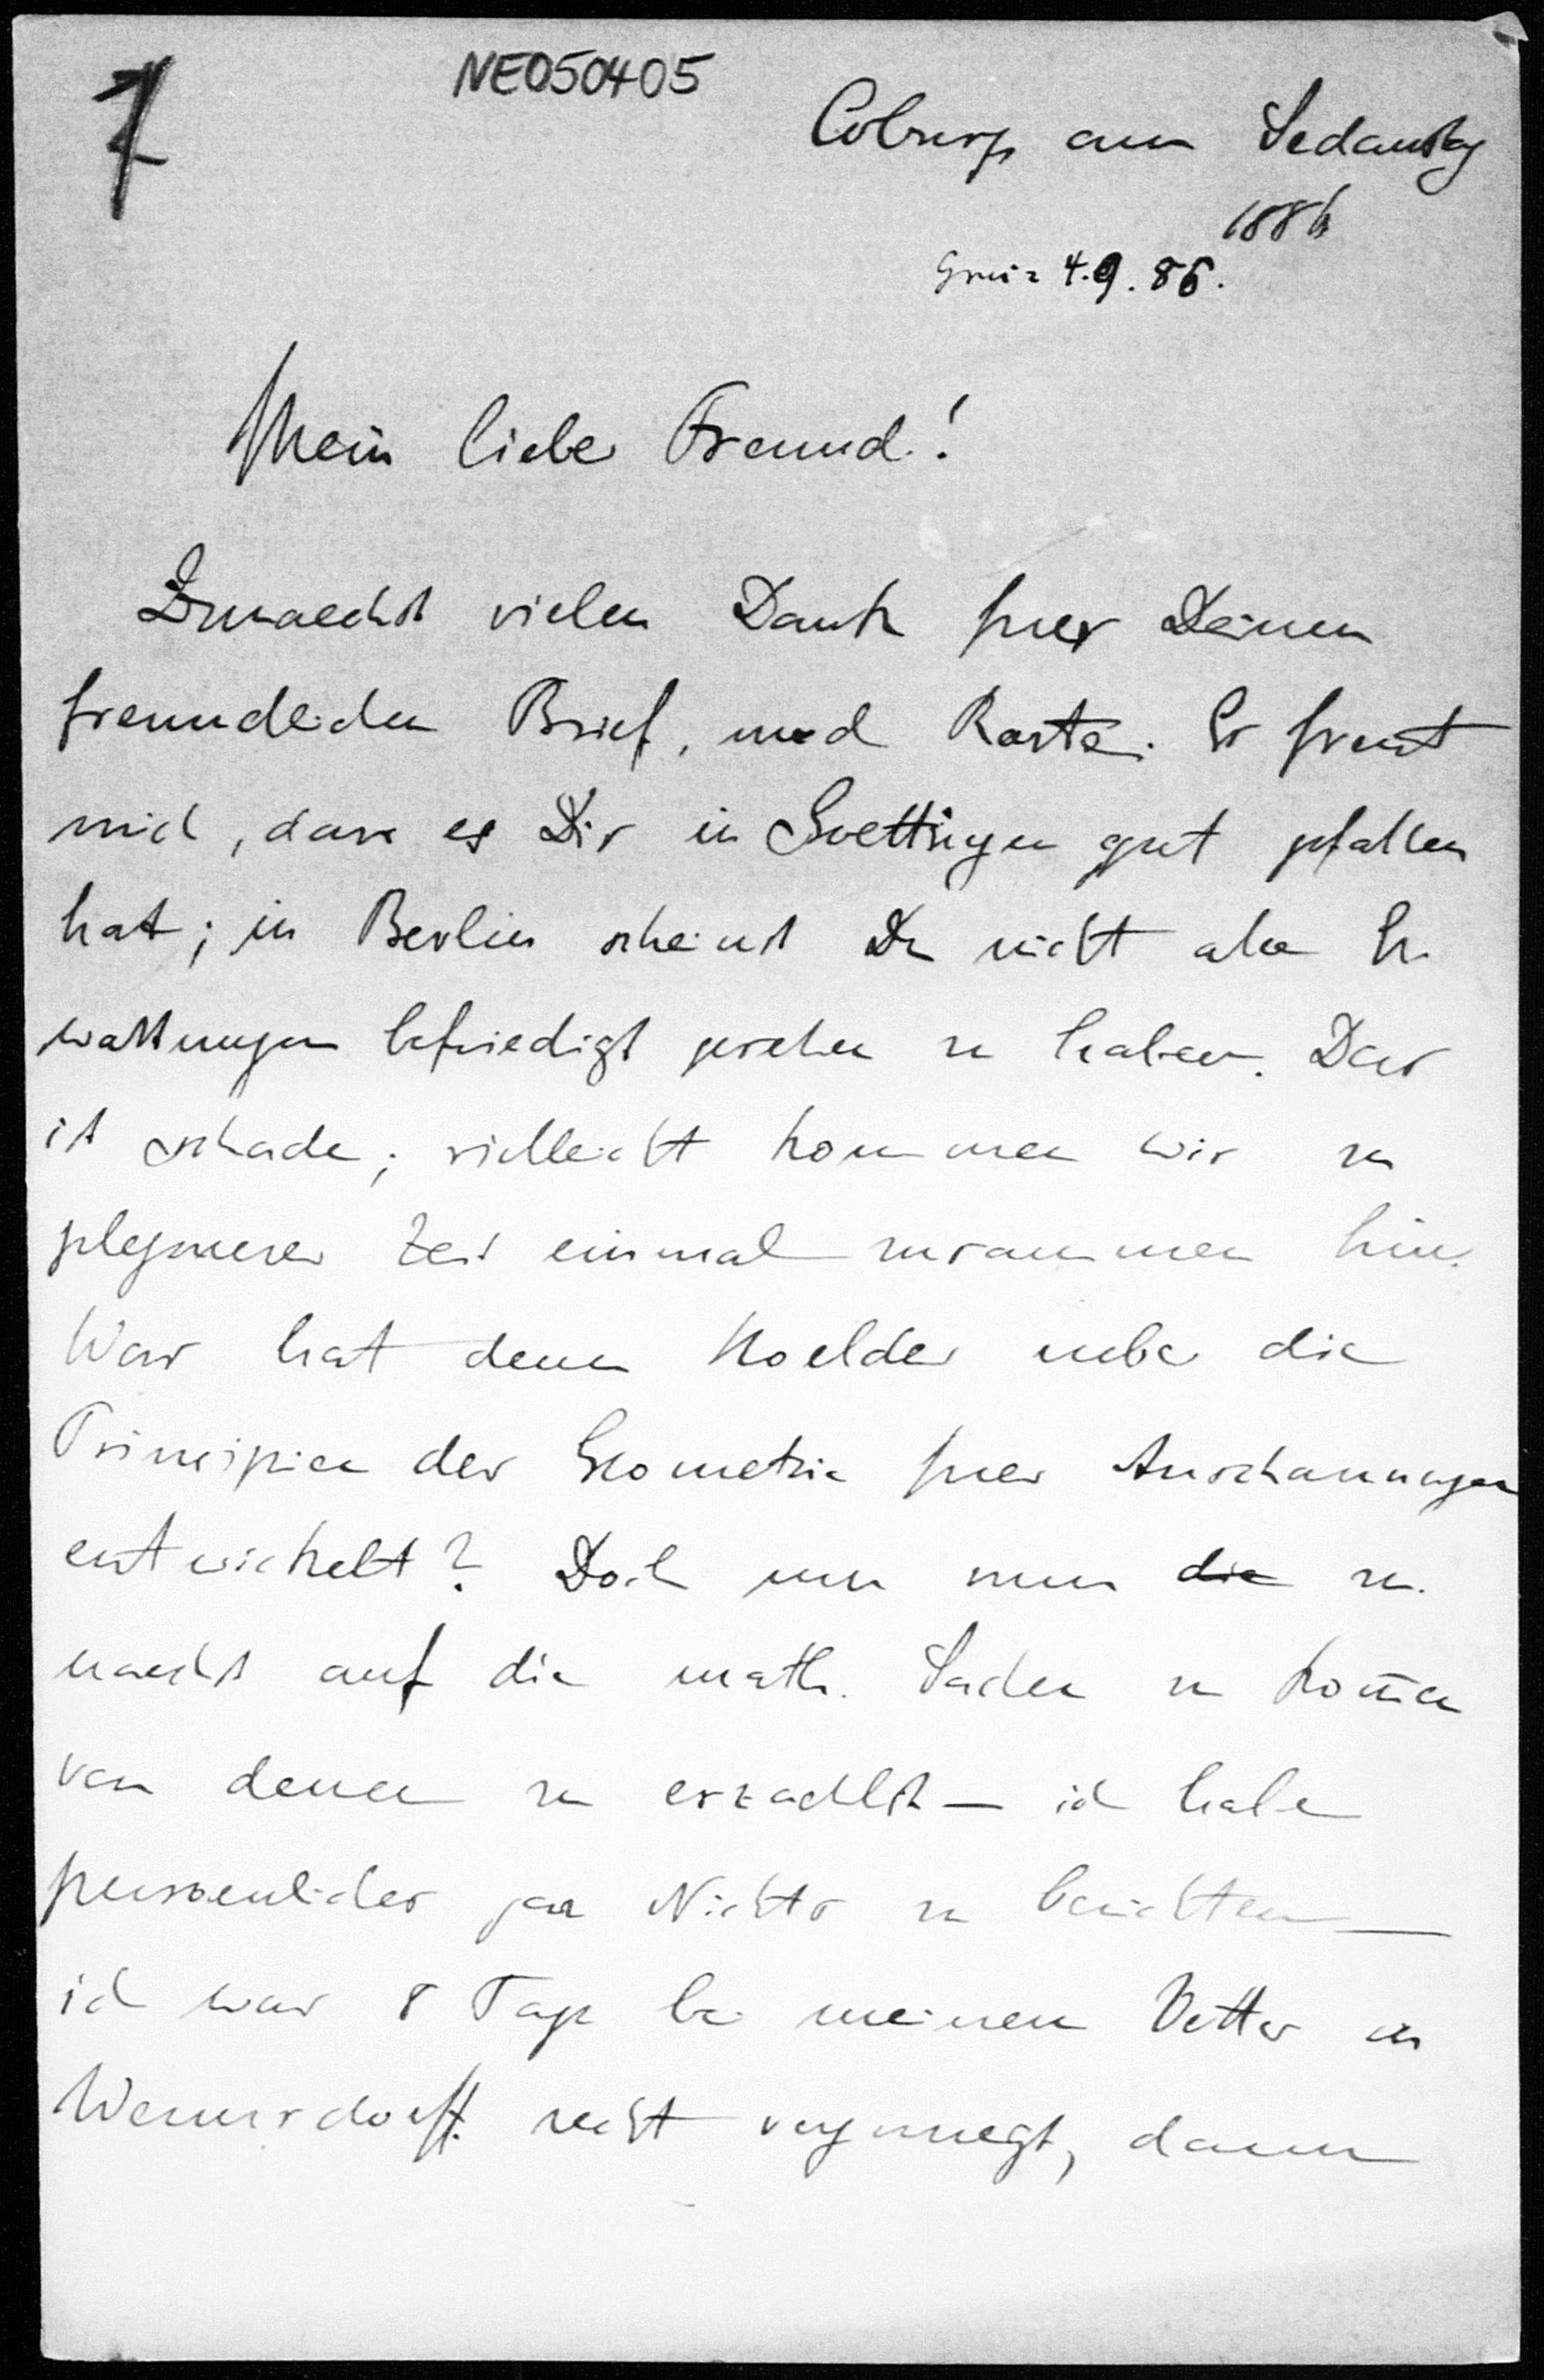 7
NE050405
Coburg am Sedanstag
1886
Greiz 4.9.86.
Mein lieber Freund!
Zunaechst vielen Dank fuer Deinen
freundlichen Brief, und Karte. Es freut
mich, dass es Dir in Goettingen gut gefallen
hat; in Berlin scheinst Du nicht alle Er-
wartungen befriedigt gesehen zu haben. Das
ist schade; vielleicht kommen wir zu
gelegenerer Zeit einmal zusammen hin.
Was hat denn Hoelder ueber die
Principien der Geometrie fuer Anschauungen
entwickelt? Doch um nun die zu-
naechst auf die math. Sachen zu kom̄en
von denen Du erzaehlst — ich habe
persoenliches gar Nichts zu berichten —
ich war 8 Tage bei meinem Vetter in
Wernsdorf recht vergnuegt, dann